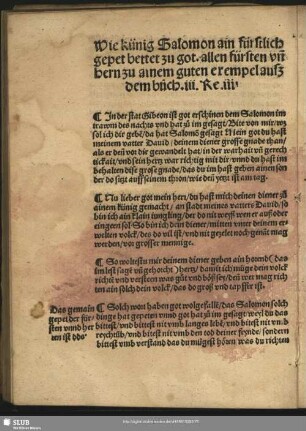 Wie künig Salomon ain fürstlich
gepet bettet zu got. allen fürsten vñ
hern zu ainem guten exempel ausz
dem bůch .iii. Re .iii.
¶ In der stat Gibeon ist got erschinen dem Salomon im
trawm des nachts vnd hat zů im gesagt/ Bite von mir/ wz
sol ich dir gebē/ da hat Salomō gesagt Mein got du hast
meinem vatter Dauid/ deinem diener grosse gnade than/
als er deñ vor dir gewandelt hat in der warhait vñ gerech
tickait/ vnd sein hertz war richtig mit dir vnnd du hast im
behalten dise grosse gnade/ das du im hast geben ainen son
der do sitzt auff seinem thron/ wie deñ yetz ist am tag
¶ Nu lieber got mein her/ du hast mich deinen diener zů
ainem künig gemacht/ an stadt meines vatters Dauid/ so
bin ich ain klain iungling/ der do nit weysz wen er ausz oder
eingeen sol So bin ich dein diener/ mitten vnter deinem er
welten volck/ des do vil ist/ vnd nit gezelet noch genāt mag
werden/ vor grosser mennige.
¶ So woltestu mir deinem diener geben ain horend (das
im lesst sagt vñ gehorcht) hertz/ damit ich müge dein volck
richtē vnd versteen was gůt vnd bösz sey/ deñ wer mag rich
ten ain solch dein volck/ das do grosz vnd tapffer ist.
Das gemain
gepet der für
sten vnnd her
ren ist ödo
¶ Solch wort haben got wolgefallē/ das Salomon solch
dinge hat gepeten vnnd got hat zů im gesagt weyl du das
bittest/ vnd bittest nit vmb langes lebē/ vnd bitest nit vmb
reychtůb/ vnd bitest nit vmb den tod deiner feynde/ sondern
bittest vmb verstand das du mögst hörn was du richten
SLUB